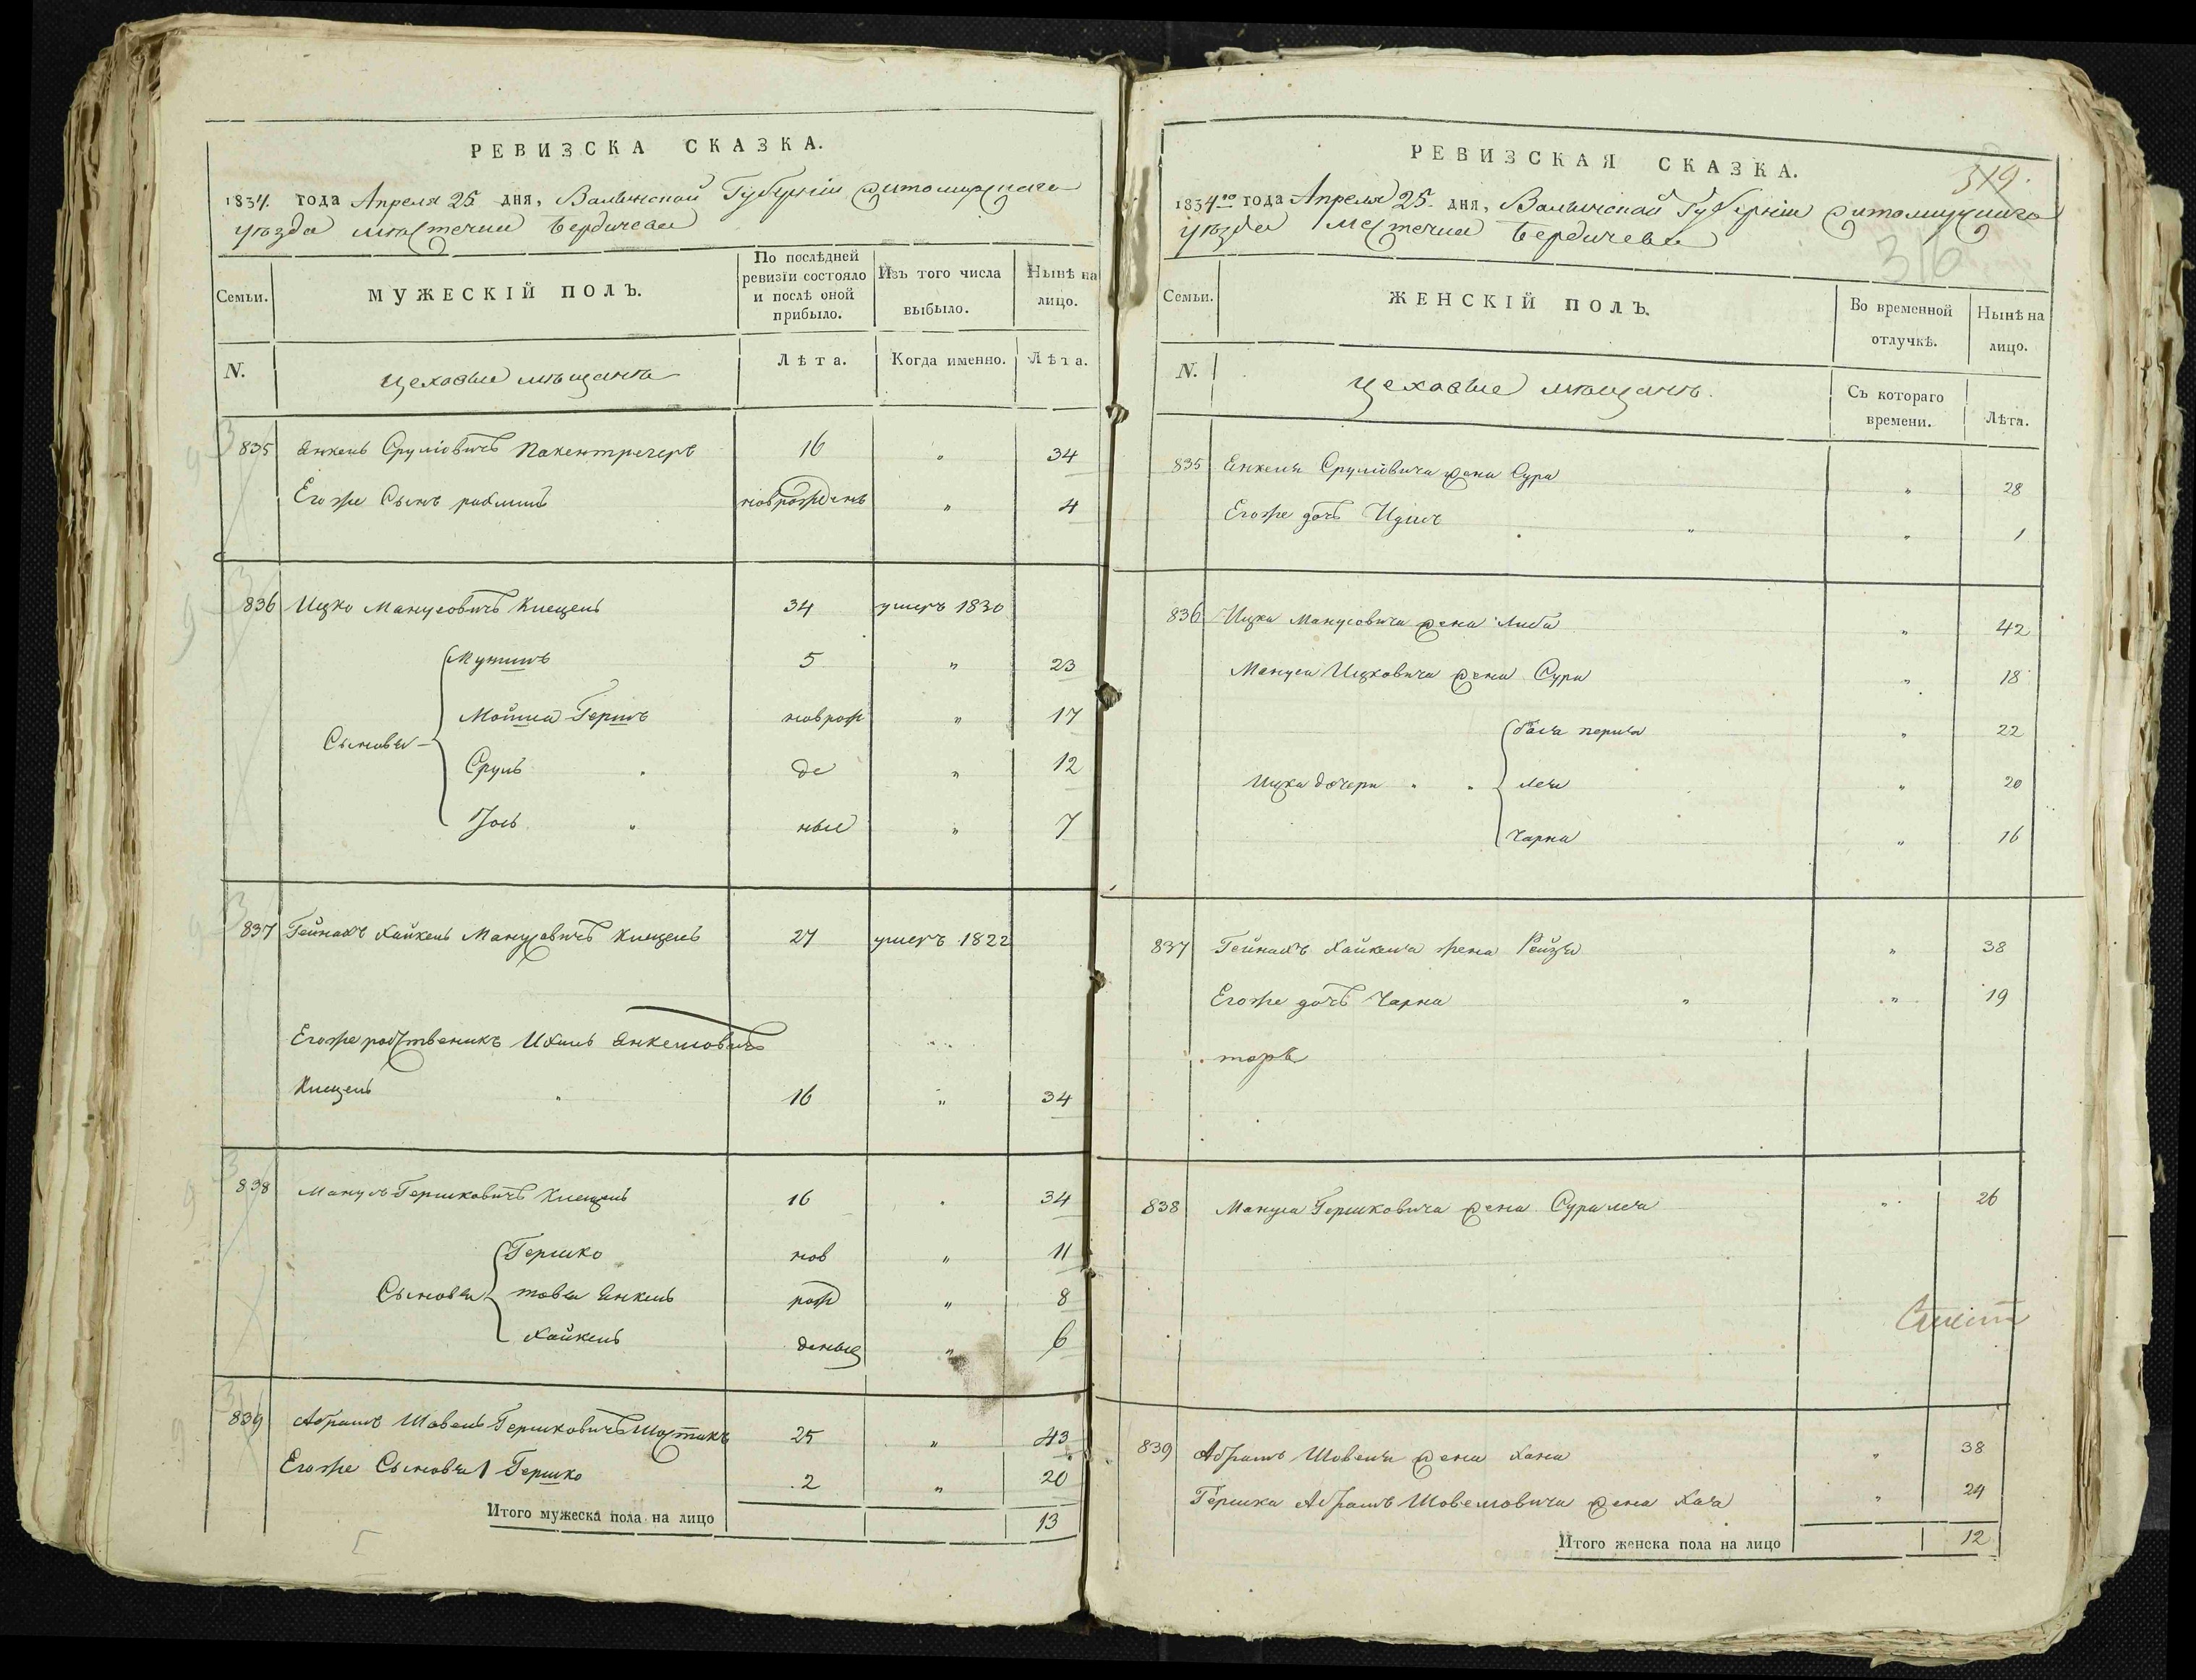 РЕВИЗСКА СКАЗКА.
1834. года Апреля 25 дня, Волынской Губерніи Житомирскаго
уѣзда мѣстечка Бердичева
Семьи.
МУЖЕСКІЙ ПОЛЪ.
По послѣдней ревизіи состояло и послѣ оной прибыло.
Изъ того числа выбыло.
Нынѣ на лицо.
N.
Цеховые мѣщане
Лѣта.
Когда именно.
Лѣта.
835 Янкель Сруліовичъ 16 " 34
Егоже Сынъ новрожденъ " 4
836 Ицко Манусовичъ Киецель 34 умеръ 1830
5 " 23
Мойша Гершъ новрож " 17
Сыновья
Сруль " де " 12
Іось " ные " 7
837 Гейнахъ Хайкель Манусовичъ Киецель 27 умеръ 1822
Егоже родственикъ Ихиль Янкелювичъ
Киецель " 16 " 34
838 Манусъ Гершковичъ Киецель 16 " 34
Гершко нов " 11
Сыновья товія Янкель рож " 8
Хайкель деные " 6
839 Абрамъ Шовель Гершковичъ 25 " 43
Егоже Сыновья 1 Гершко 2 " 20
Итого мужеска пола на лицо 13
РЕВИЗСКАЯ СКАЗКА.
319.
1834го года Апреля 25. дня, Волынской Губерніи Житомирскаго
уѣзда мѣстечка Бердичева
316
Семьи.
ЖЕНСКІЙ ПОЛЪ.
Во временной отлучкѣ.
Нынѣ на лицо.
N.
Цеховые мѣщане.
Съ котораго времени.
Лѣта.
835 Янкеля Сруліовича жена Сура " 28
Егоже дочь " " 1
836 Ицка Манусовича жена Либа " 42
Мануса Ицковича жена Сура " 18
бася перля " 22
Ицка дочери " " лея " 20
Чарна " 16
837 Гейнахъ Хайкеля жена Рейзя " 38
Егоже дочь Чарна " " 19
838 Мануса Гершковича жена Сура лея " 26
839 Абрамъ Шовеля жена Хана " 38
Гершка Абрамъ Шовелювича жена Хая " 24
Итого женска пола на лицо 12